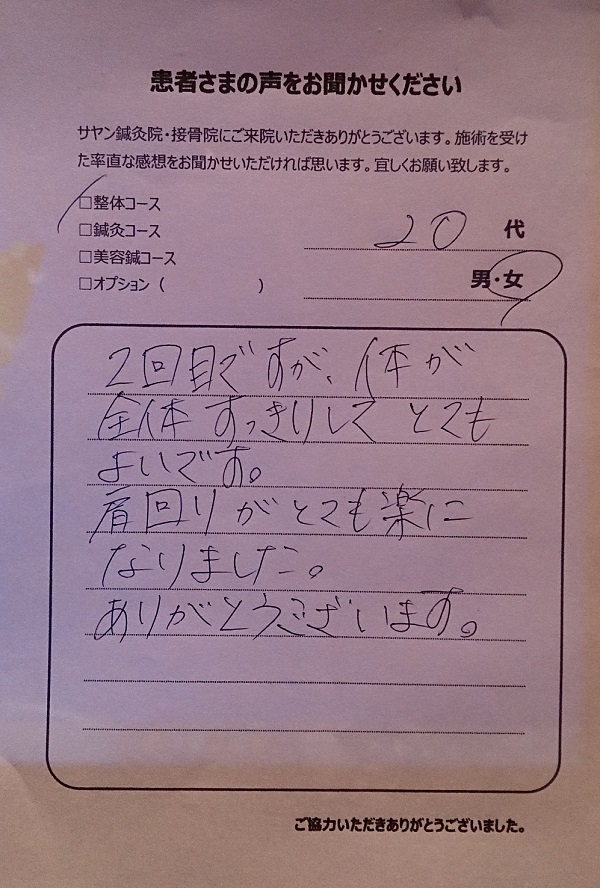 患者さまの声をお聞かせください
サヤン鍼灸院・接骨院にご来院いただきありがとうございます。施術を受け
た率直な感想をお聞かせいただければ思います。宜しくお願い致します。
□整体コース
□鍼灸コース
20 代
□美容鍼コース
男・女
□オプション（　　　　　　）
2回目ですが、体が
全体すっきりしてとても
よいです。
肩回りがとても楽に
なりました。
ありがとうございます。
ご協力いただきありがとうございました。